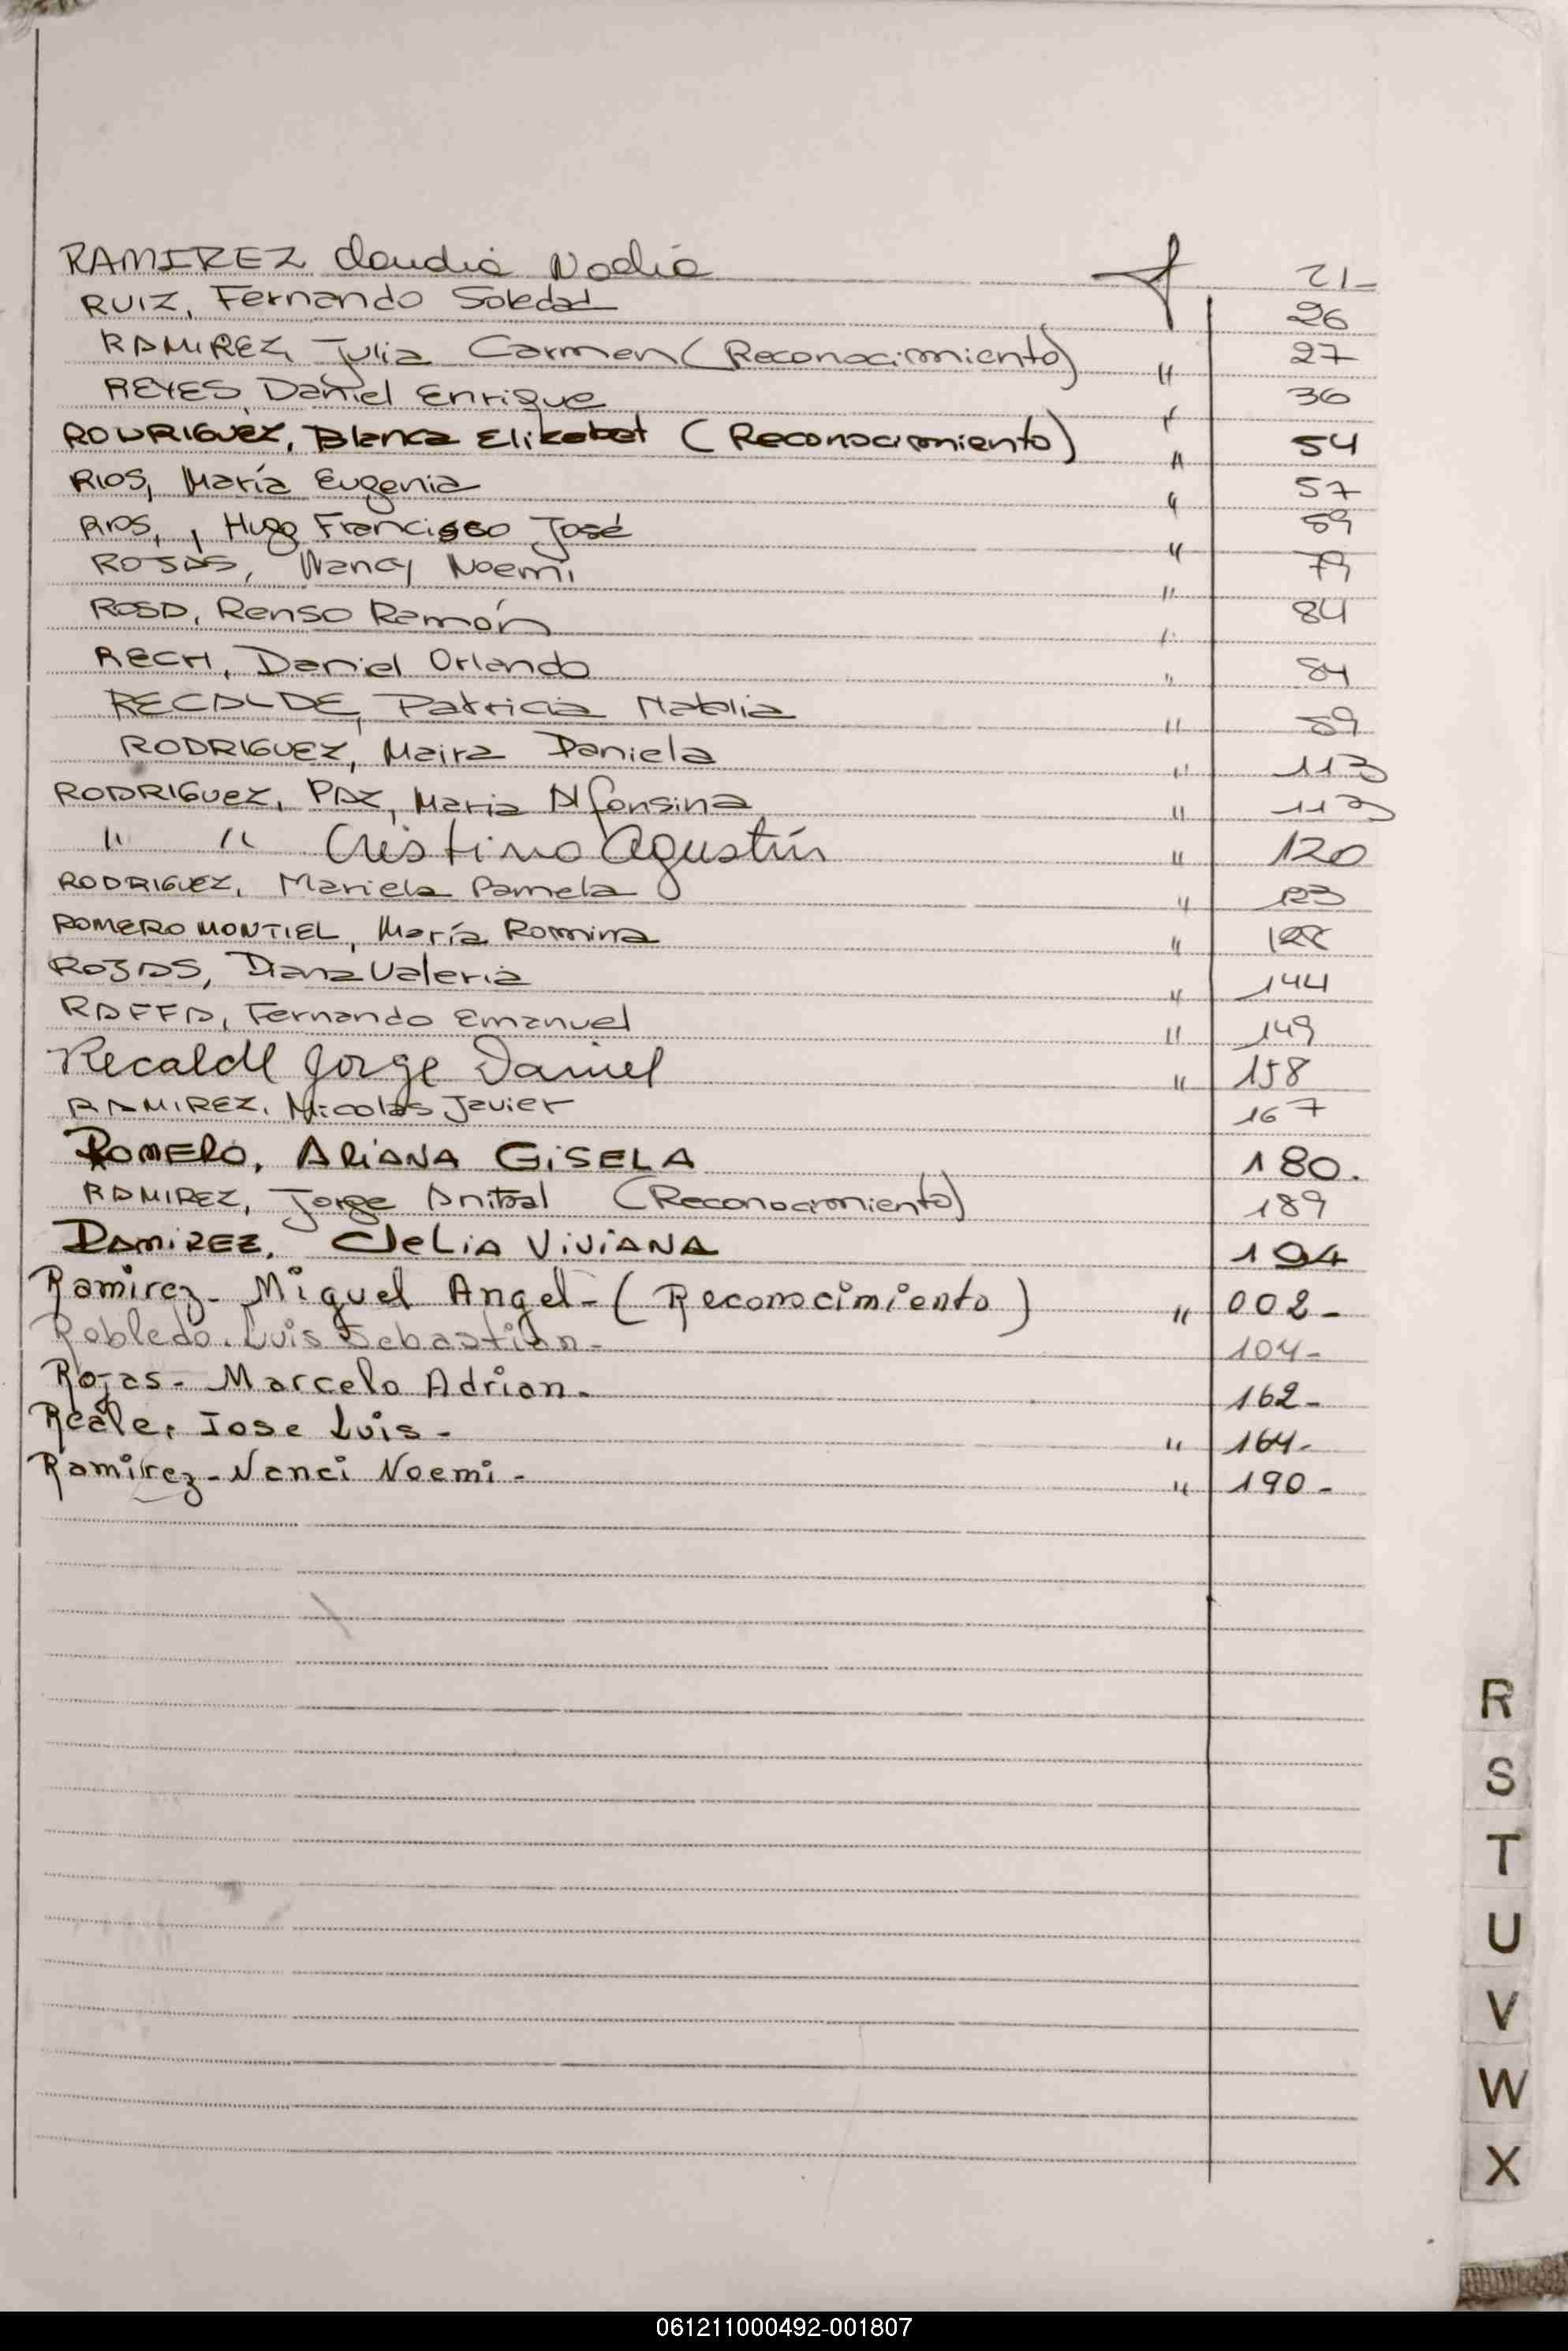 RAMIREZ Claudia Nadia f 21-
RUIZ, Fernando Soledad 26
RAMIREZ, Julia Carmen (Reconocimiento) " 27
REYES, Daniel Enrique " 36
RODRIGUEZ, Blanca Elizabet (Reconocimiento) " 54
RIOS, María Eugenia " 57
RIOS, , Hugo Francisco José " 59
ROJAS, Nancy Noemi " 79
ROSA, Renso Ramón " 84
RECH, Daniel Orlando " 84
RECALDE, Patricia Natalia " 89
RODRIGUEZ, Maira Daniela " 113
RODRIGUEZ, PAZ, Maria Alfonsina " 113
" " Cristino Agustín " 120
RODRIGUEZ, Mariela Pamela " 123
ROMERO MONTIEL, María Romina "
ROJAS, Diana Valeria " 144
RAFFA, Fernando Emanuel " 149
Recalde Jorge Daniel " 158
RAMIREZ, Nicolas Javier 167
ROMERO, ARIANA GISELA 180.
RAMIREZ, Jorge Anibal (Reconocimiento) 189
RAMIREZ, CLELIA VIVIANA 194
Ramirez- Miguel Angel- (Reconocimiento) " 002-
Robledo. Luis Sebastian- 104-
Rojas- Marcelo Adrian- 162-
Reale, Jose Luis- " 164-
Ramirez- Nanci Noemi- " 190-
R
S
T
U
V
W
X
061211000492-001807